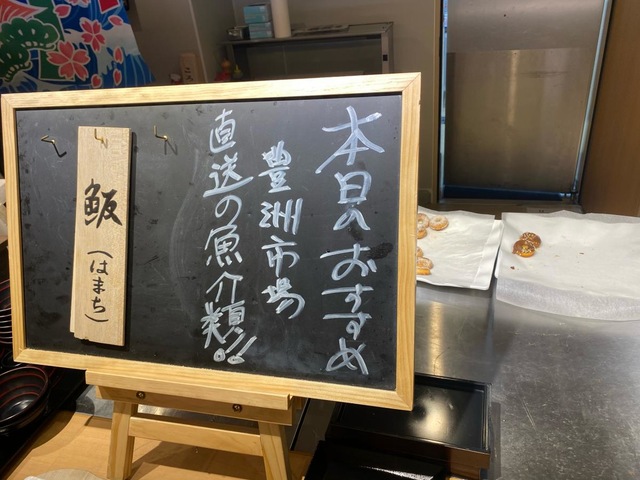 本日のおすすめ
豊洲市場
直送の魚介類!!
鰤
(はまち)